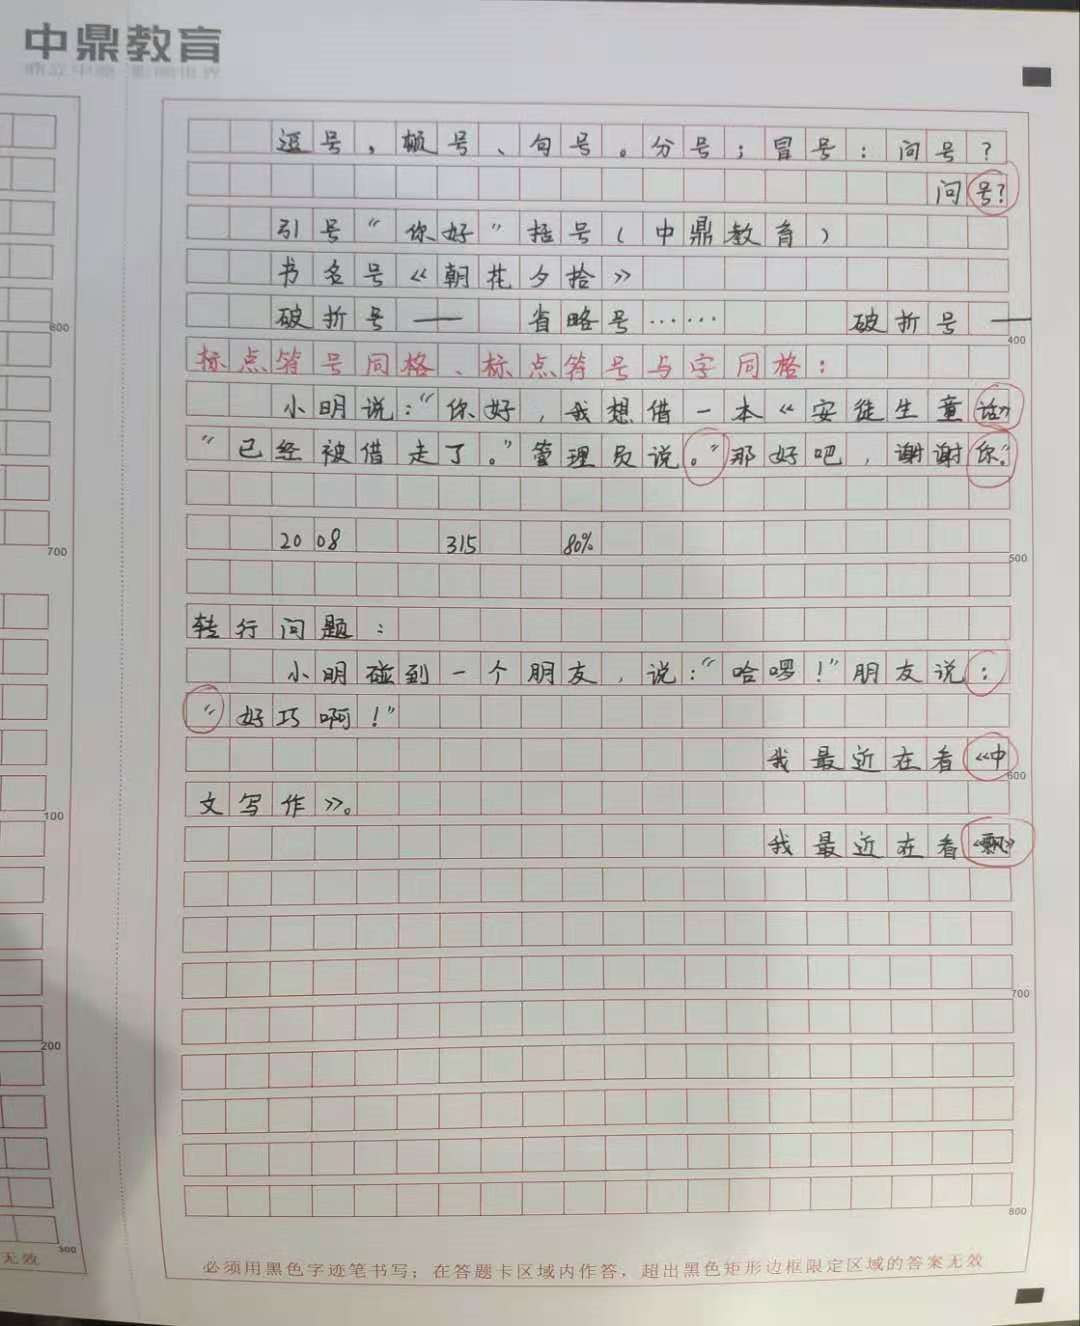 中鼎教育
逗号，顿号、句号。分号；冒号：问号？
问号？
引号“你好”括号（中鼎教育）
书名号《朝花夕拾》
破折号——省略号……破折号——
400
标点符号同格、标点符号与字同格：
小明说：“你好，我想借一本《安徒生童话》
“已经被借走了。”管理员说。”那好吧，谢谢你。”
2008 315 80%
500
转行问题：
小明碰到一个朋友，说：“哈啰！”朋友说：
“好巧啊！”
我最近在看《中
600
文写作》。
我最近在看《飘》
700
800
必须用黑色字迹笔书写；在答题卡区域内作答，超出黑色矩形边框限定区域的答案无效
600
700
100
200
300
无效